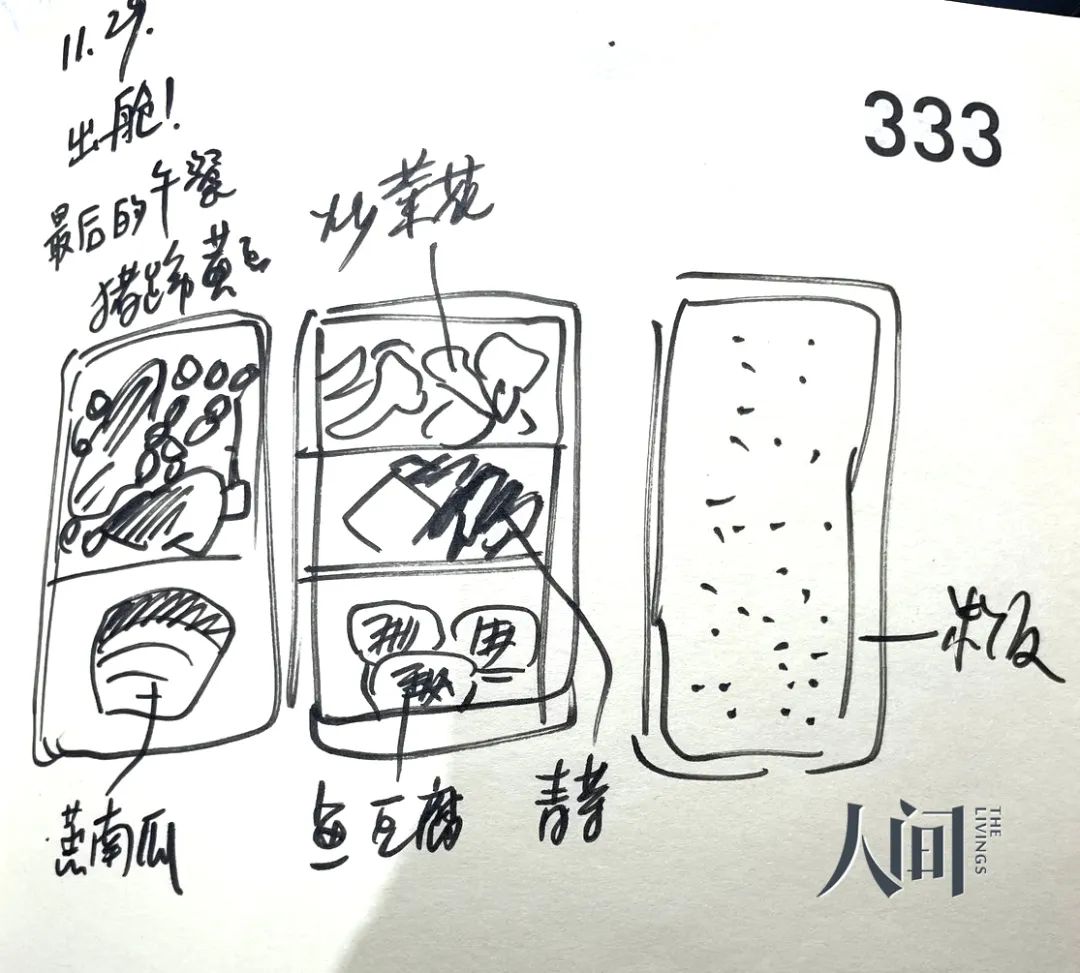 11.29.
出舱!
最后的午餐
猪蹄黄豆
炒菜花
333
米饭
蒸南瓜
鱼豆腐
青菜
人间
THE LIVINGS